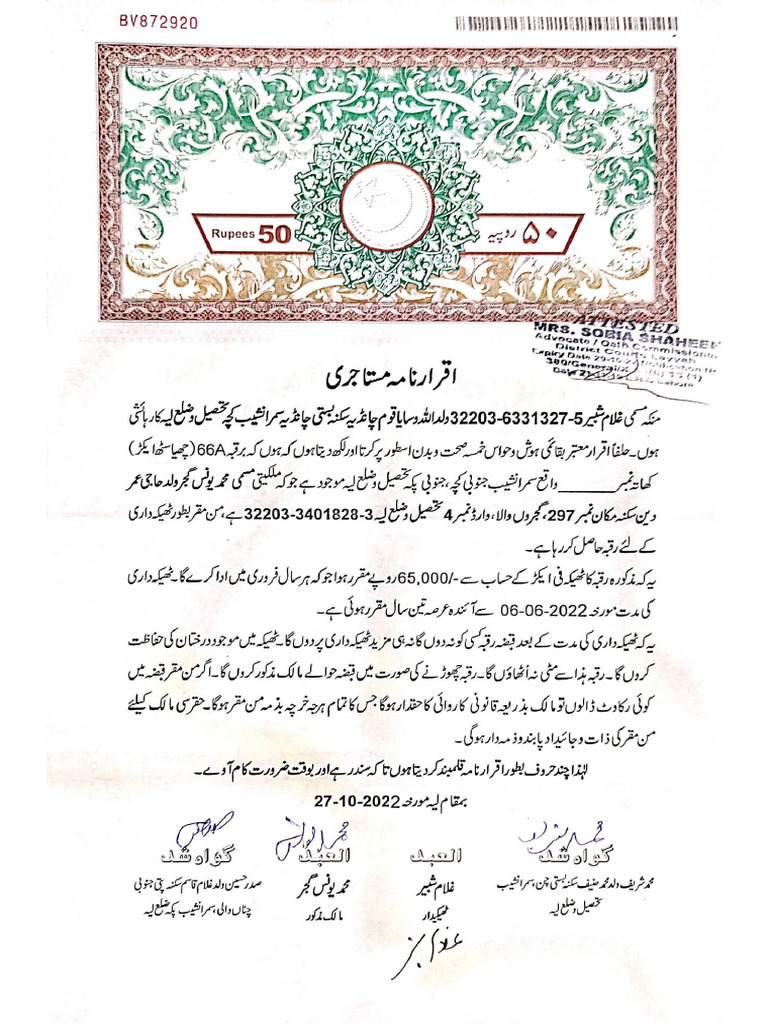 BV872920
Rupees 50
۵۰ روپیہ
ATTESTED
MRS. SOBIA SHAHEEN
Advocate / Oath Commissioner
District Courts Layyah
Expiry Date 29-10-24 Notification No
380/General/X
اقرارنامہ مستاجری
منکہ مسمی غلام شبیر 5-6331327-32203 ولد اللہ وسایا قوم چانڈیہ سکنہ بستی چانڈیہ سمرا نشیب کچہ تحصیل و ضلع لیہ کا رہائشی
ہوں۔ حلفاً اقرار معتبر بقائمی ہوش و حواس خمسہ صحت و بدن اسطور پر کرتا اور لکھ دیتا ہوں کہ ہوں کہ برقبہ 66A (چھیاسٹھ ایکڑ)
کھاتہ نمبر ______ واقع سمرا نشیب جنوبی کچہ، جنوبی پکہ تحصیل و ضلع لیہ موجود ہے جو کہ ملکیتی مسمی محمد یونس گجر ولد حاجی عمر
دین سکنہ مکان نمبر 297، گجروں والا، وارڈ نمبر 4 تحصیل و ضلع لیہ 3-3401828-32203 ہے، من مقر بطور ٹھیکہ داری
کے لئے رقبہ حاصل کر رہا ہے۔
یہ کہ مذکورہ رقبہ کا ٹھیکہ فی ایکڑ کے حساب سے -/65,000 روپے مقرر ہوا جو کہ ہر سال فروری میں ادا کرے گا۔ ٹھیکہ داری
کی مدت مورخہ 06-06-2022 سے آئندہ عرصہ تین سال مقرر ہوئی ہے۔
یہ کہ ٹھیکہ داری کی مدت کے بعد قبضہ رقبہ کسی کو نہ دوں گا نہ ہی مزید ٹھیکہ داری پر دوں گا۔ ٹھیکہ میں موجود درختان کی حفاظت
کروں گا۔ رقبہ ہذا سے مٹی نہ اُٹھاؤں گا۔ رقبہ چھوڑنے کی صورت میں قبضہ حوالے مالک مذکور کروں گا۔ اگر من مقر قبضہ میں
کوئی رکاوٹ ڈالوں تو مالک بذریعہ قانونی کاروائی کا حقدار ہوگا جس کا تمام ہرجہ خرچہ بذمہ من مقر ہوگا۔ حقرسی مالک کیلئے
من مقر کی ذات و جائیداد پابند و ذمہ دار ہوگی۔
لہٰذا چند حروف بطور اقرارنامہ قلمبند کر دیتا ہوں تا کہ سند رہے اور بوقت ضرورت کام آوے۔
بمقام لیہ مورخہ 27-10-2022
گواہ شد العبد العبد گواہ شد
محمد شریف ولد محمد حنیف سکنہ بستی چن، سمرا نشیب غلام شبیر محمد یونس گجر صدر حسین ولد غلام قاسم سکنہ پتی جنوبی
تحصیل و ضلع لیہ ٹھیکیدار مالک مذکور چناں والی، سمرا نشیب پکہ ضلع لیہ